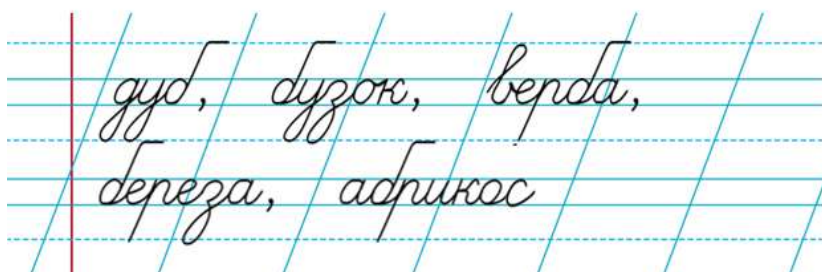 дуб, бузок, верба,
береза, абрикос